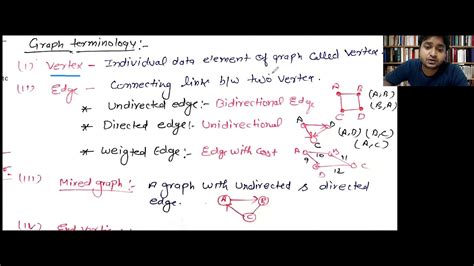 Graph terminology:-
(I) Vertex - Individual data element of graph called vertex.
(II) Edge - Connecting link b/w two vertex.
* Undirected edge: Bidirectional Edge
A B
C D
(A,B)
(B,A)
* Directed edge: Unidirectional
A D
C
(A,D) (D,C)
(A,C)
* Weigted Edge: Edge with Cost
A 10 B 11
9 12 C
(III) Mixed graph:- A graph with undirected & directed
edge.
A B
C
(IV) End